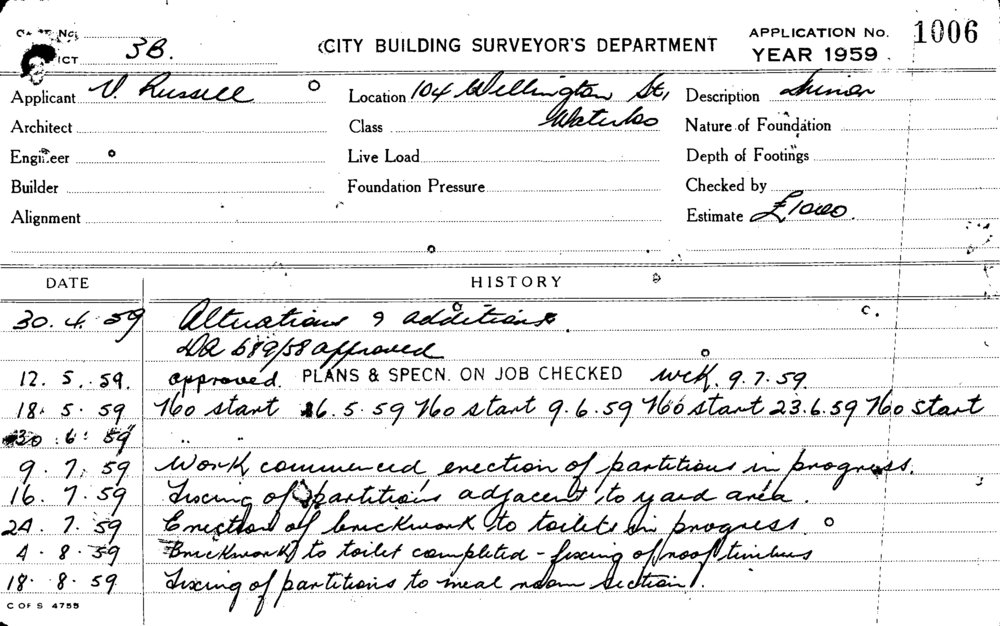 3B. CITY BUILDING SURVEYOR'S DEPARTMENT APPLICATION No. 1006
YEAR 1959
Applicant V. Russell Location 104 Wellington St., Description
Architect Class Waterloo Nature of Foundation
Engineer Live Load Depth of Footings
Builder Foundation Pressure Checked by
Alignment Estimate £1000
DATE HISTORY
30.4.59 Alterations & additions.
DA 689/58 approved
12.5.59. approved. PLANS & SPECN. ON JOB CHECKED WCK. 9.7.59.
18.5.59 No start 26.5.59 No start 9.6.59 No start 23.6.59 No start
30.6.59 " "
9.7.59 Work commenced erection of partitions in progress.
16.7.59 Fixing of partitions adjacent to yard area.
24.7.59 Erection of brickwork to toilets in progress
4.8.59 Brickwork to toilet completed - fixing of roof timbers
18.8.59 Fixing of partitions to meal room section.
C OF S 4755